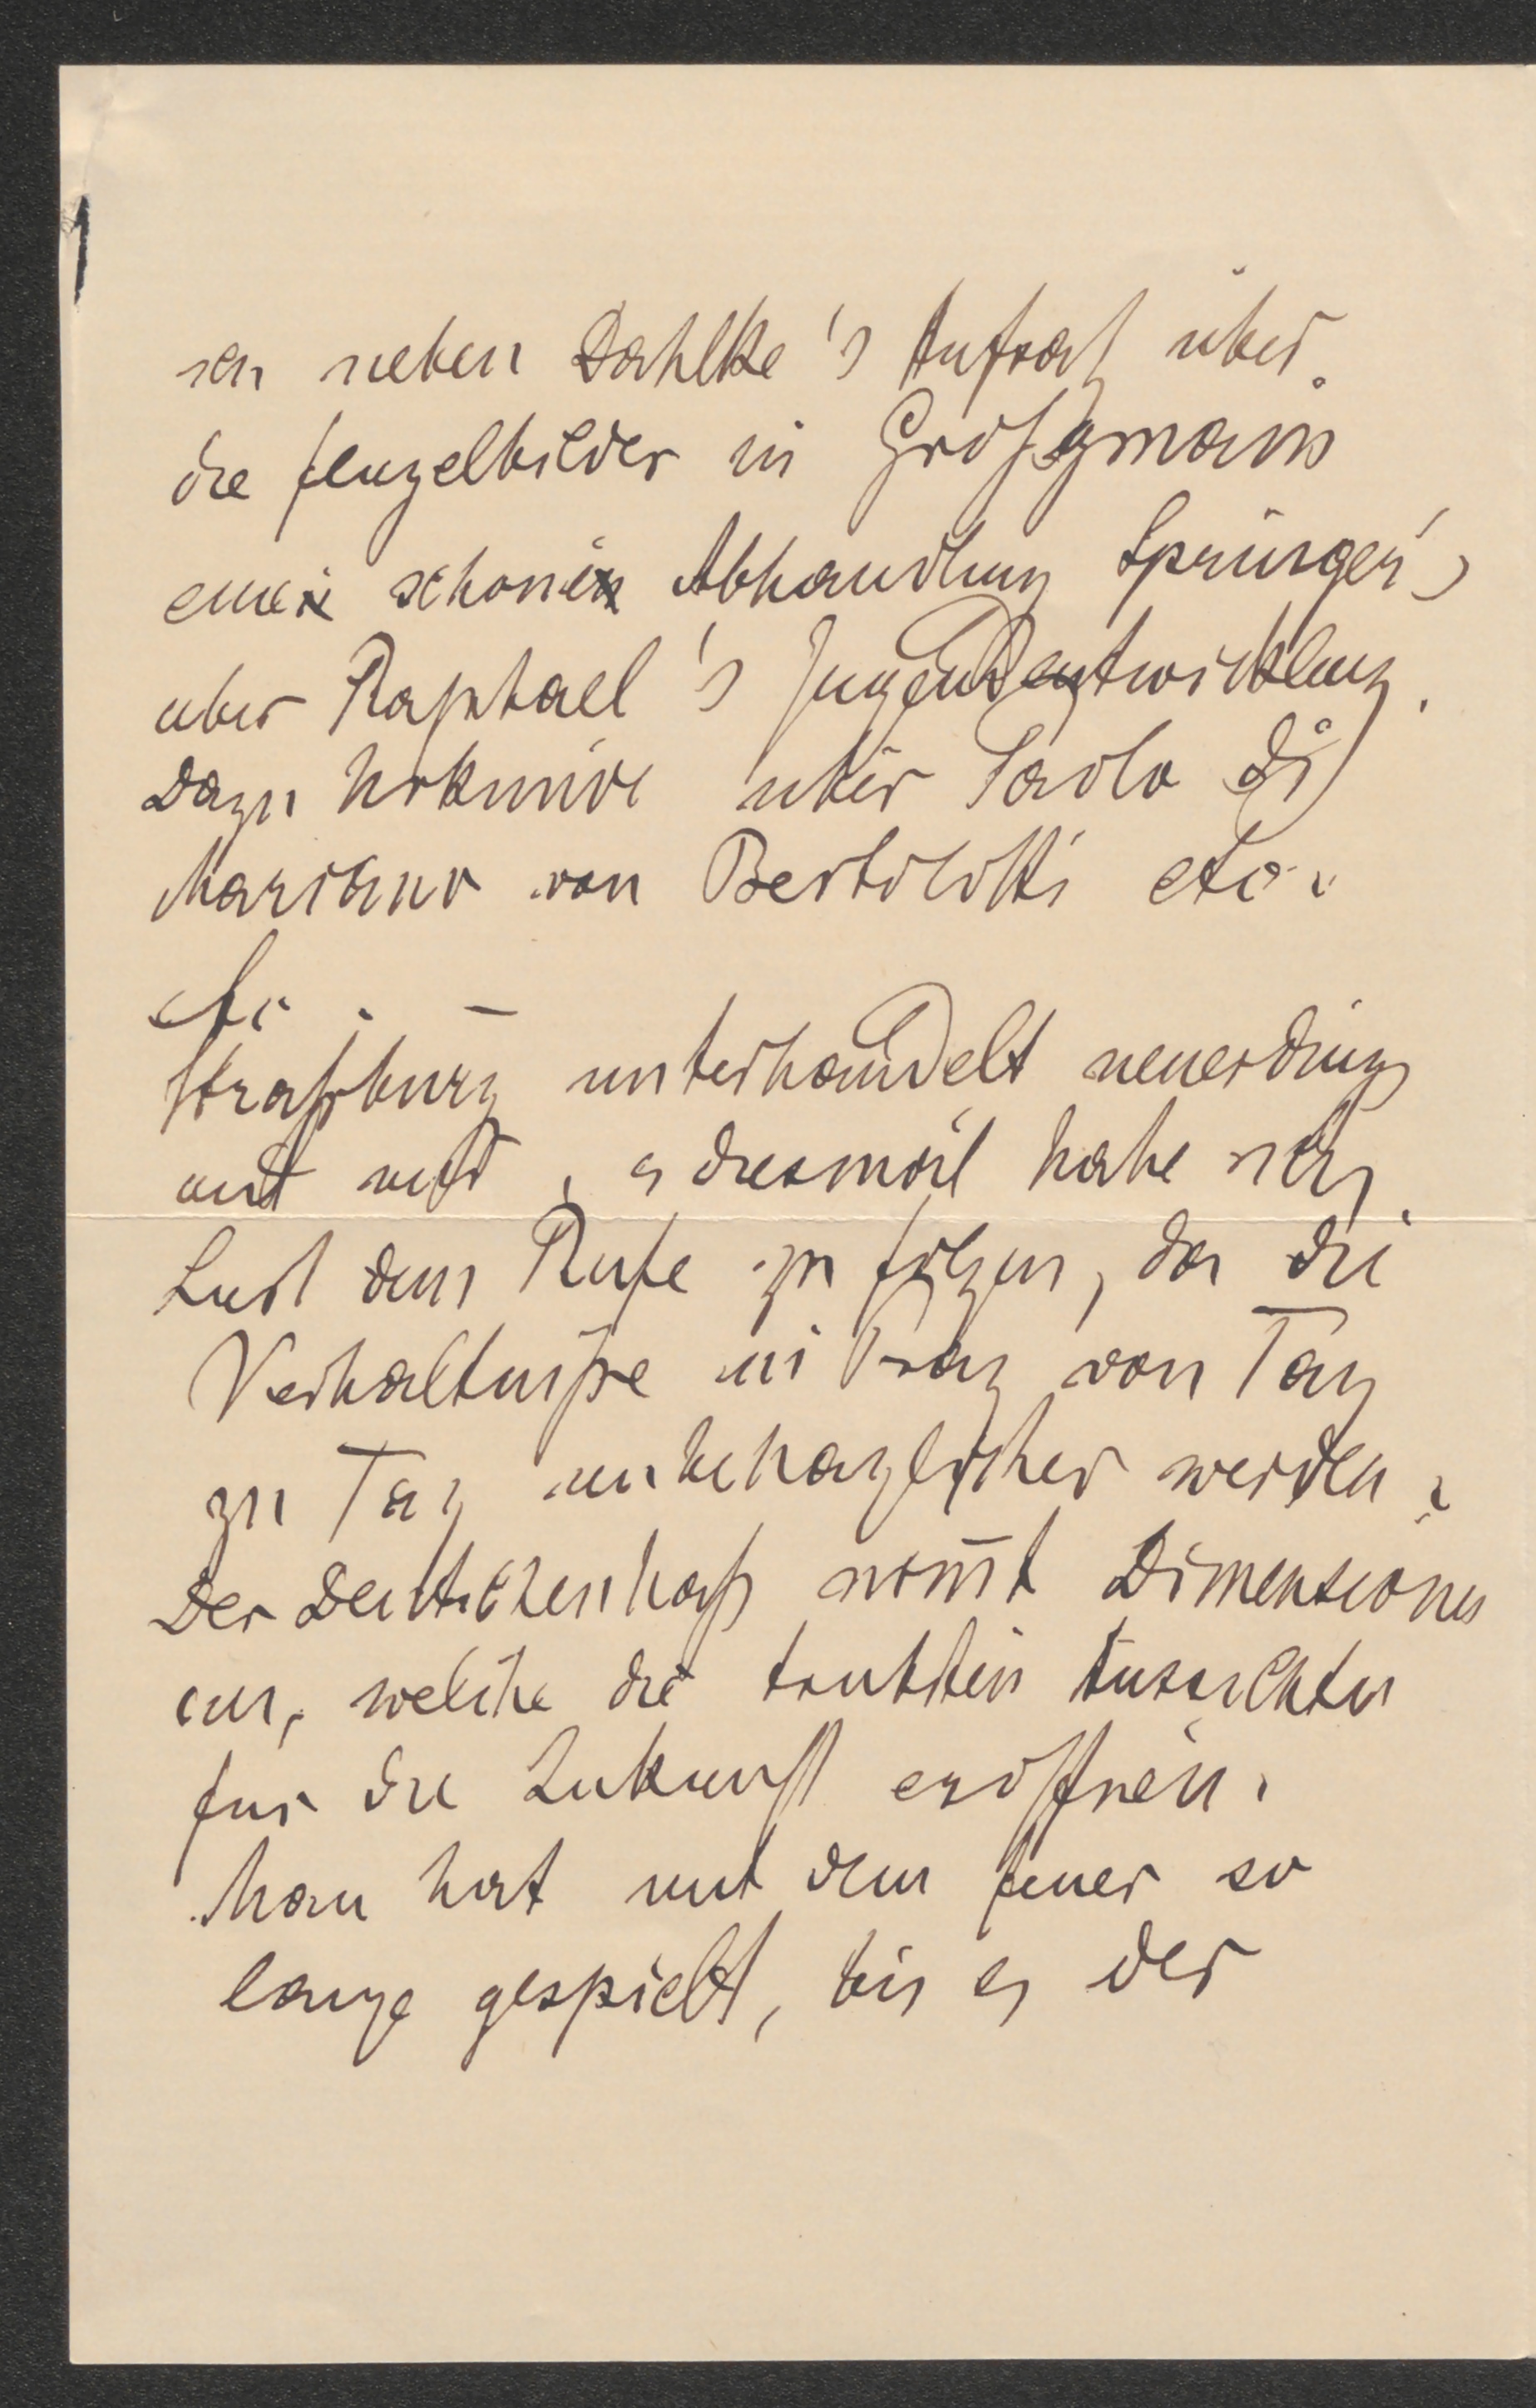 ich neben Dahlke's Aufsatz über
die Fluegelbilder in Großgmain
eine schöne Abhandlung Springer's
über Raphael's Jugendentwicklung.
Dazu Urkunde über Paolo di
Mariano von Bertolotti etc.
etc. –
Straßburg unterhandelt neuerdings
mit mir, diesmal habe ich
Lust dem Rufe zu folgen, da die
Verhältniße in Prag von Tag
zu Tag unbehaglicher werden.
Der Deutschenhaß nim̄t Dimensionen
an, welche die trübsten Aussichten
für die Zukunft eröffnen.
Man hat mit dem Feuer so
lange gespielt, bis es der